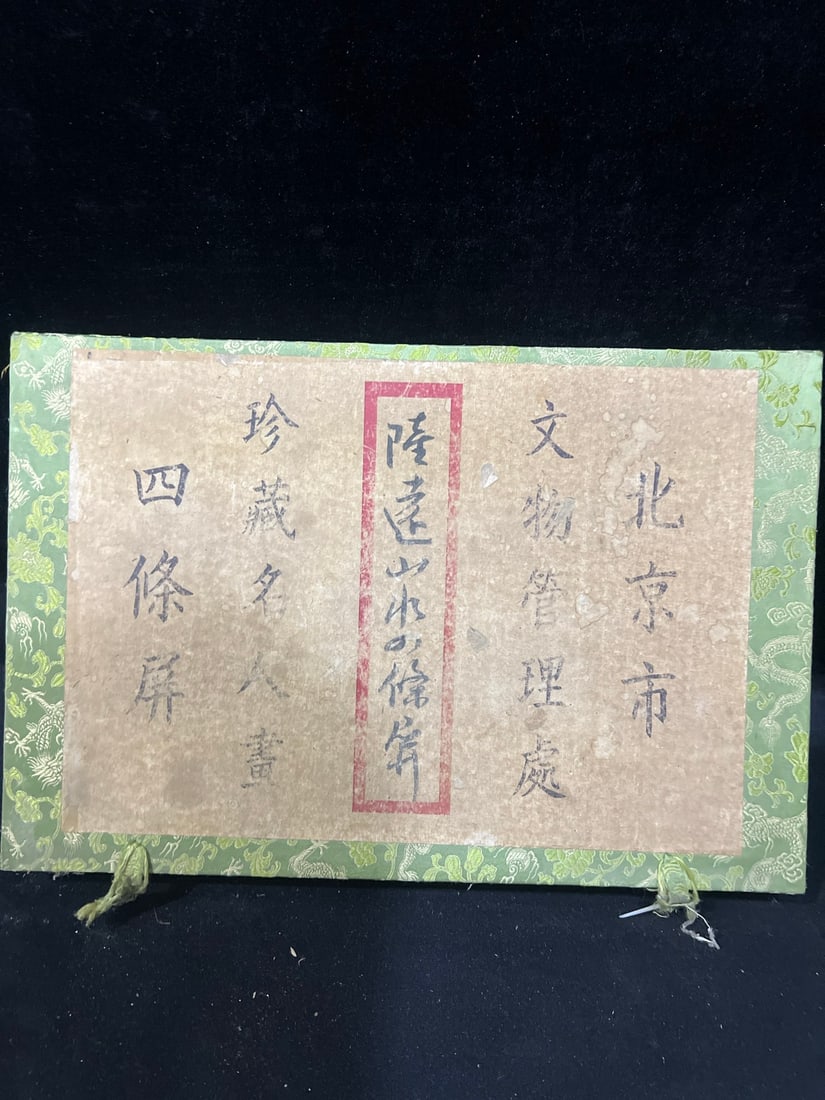 北京市
文物管理處
陸遠山水四條屏
珍藏名人畫
四條屏